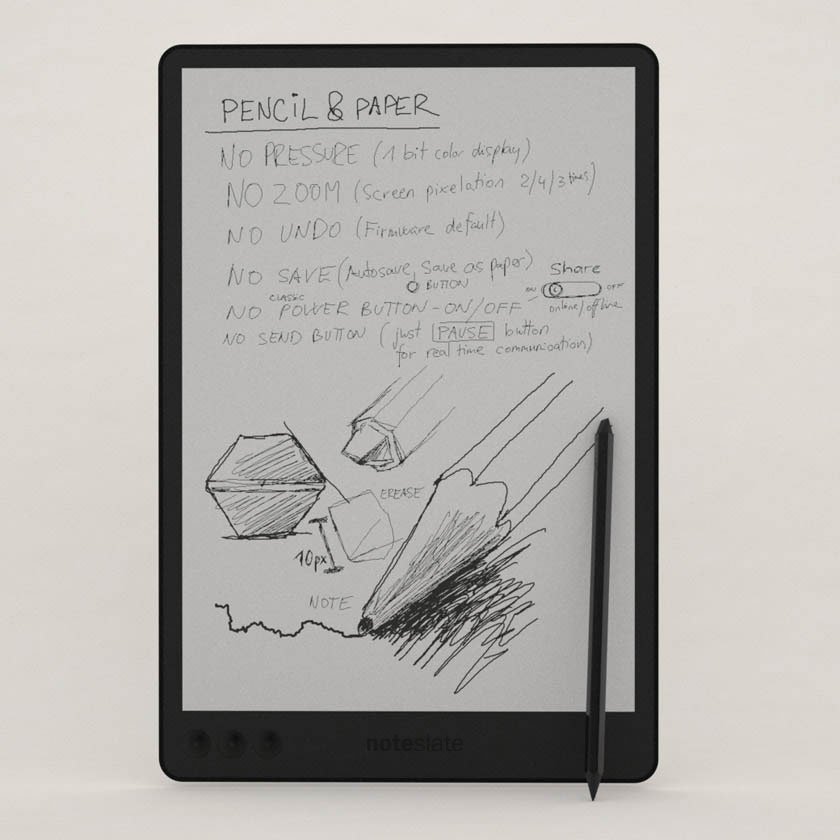 PENCIL & PAPER
NO PRESSURE (1 bit color display)
NO ZOOM (Screen pixelation 2/4/3 times)
NO UNDO (Firmware default)
NO SAVE (Autosave, Save as paper)
Share
BUTTON
ON OFF
CLASSIC
NO POWER BUTTON - ON/OFF
online/offline
NO SEND BUTTON (just PAUSE button
for real time communication)
EREASE
10px
NOTE
noteslate